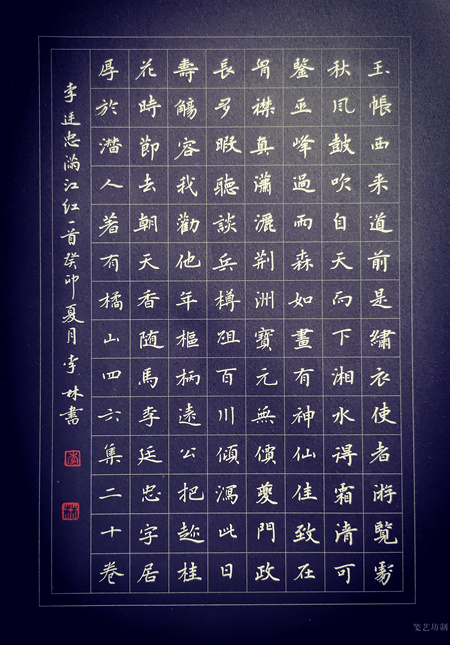 玉帳西来道前是繡衣使者游覽處
秋风鼓吹自天而下湘水得霜清可
鑒巫峰過雨森如畫有神仙佳致在
胷襟真瀟灑荆洲寶元無價夔門政
長多暇聽談兵樽俎百川傾瀉此日
壽觴容我勸他年樞柄遠公把趂桂
花時節去朝天香随馬李廷忠字居
厚於潜人著有橘山四六集二十卷
李廷忠满江红一首癸卯夏月李林書
李
林
笺艺坊制